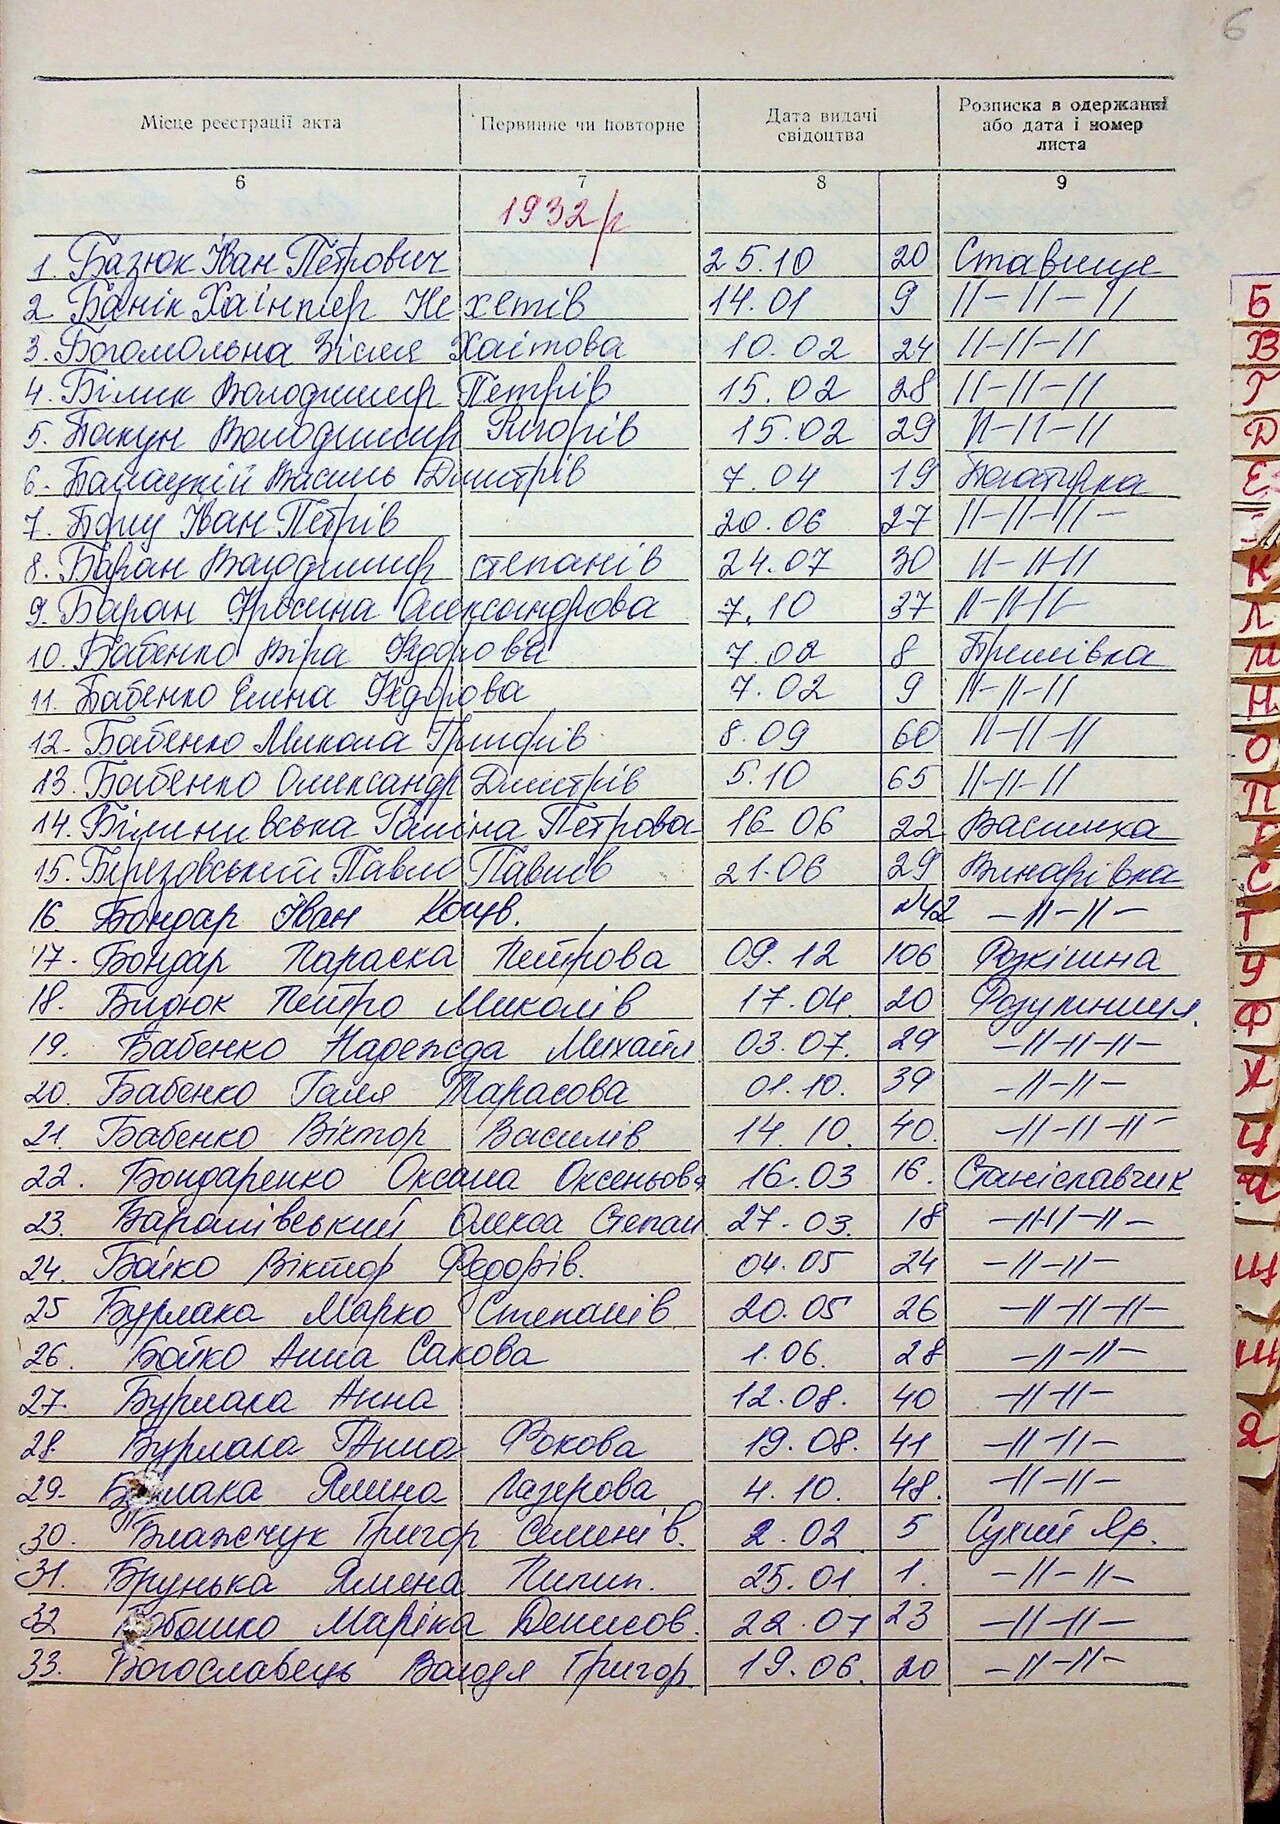 6
Місце реєстрації акта Первинне чи повторне Дата видачі свідоцтва Розписка в одержанні або дата і номер листа
6 7 8 9
1932 р
1. Базюк Іван Петрович 25.10 20 Ставище
2 Банік 14.01 9 //-//-//
3. Богомольна Зісля Хаімова 10.02 24 //-//-//
4. Білик Володимир Петрів 15.02 28 //-//-//
5. Бакун Володимир Григорів 15.02 29 //-//-//
6. Василь Дмитрів 7.04 19
7. Іван Петрів 20.06 27 //-//-//-
8. Баран Володимир степанів 24.07 30 //-//-//
9. Баран Фросина Олександрова 7.10 37 //-//-//-
10. Бабенко Віра Федорова 7.02 8
11. Бабенко Елина Федорова 7.02 9 //-//-//
12. Бабенко Микола 8.09 60 //-//-//
13. Бабенко Олександр Дмитрів 5.10 65 //-//-//
14. Галина Петрова 16 06 22 Василиха
15. Березовський Павло Павлів 21.06 29 Винарівка
16. Бондар Іван №42 -//-//-
17. Бондар Параска Петрова 09.12 106 Розкішна
18. Бидюк Петро Миколів 17.04. 20
19. Бабенко Надежда Михайл 03.07. 29 -//-//-//-
20. Бабенко Галя Тарасова 01.10. 39 -//-//-
21. Бабенко Віктор Василів. 14.10. 40. -//-//-//-
22. Бондаренко Оксана Оксеньова 16.03 16. Станіславчик
23. Олекса Степан. 27.03. 18 -//-//-//-
24. Бойко Віктор Федорів. 04.05 24 -//-//-
25 Бурлака Марко Степанів 20.05 26 -//-//-//-
26. Бойко Анна Сакова 1.06. 28 -//-//-
27. Бурлака Анна 12.08. 40 -//-//-
28. Бурлака Ганна Фокова 19.08. 41 -//-//-
29. Бурлака Ялина Лазерова 4.10. 48. -//-//-
30. Блажчук Григор Семенів. 2.02 5 Сухий Яр.
31. Брунька Ялена Пилип. 25.01 1. -//-//-
32 Маріка Денисов. 22.07 23 -//-//-
33. Богославець Володя Григор 19.06. 20 -//-//-
Б
В
Г
Д
Е
К
Л
М
Н
О
П
С
Т
У
Ф
Х
Ц
Ч
Щ
Ш
Я